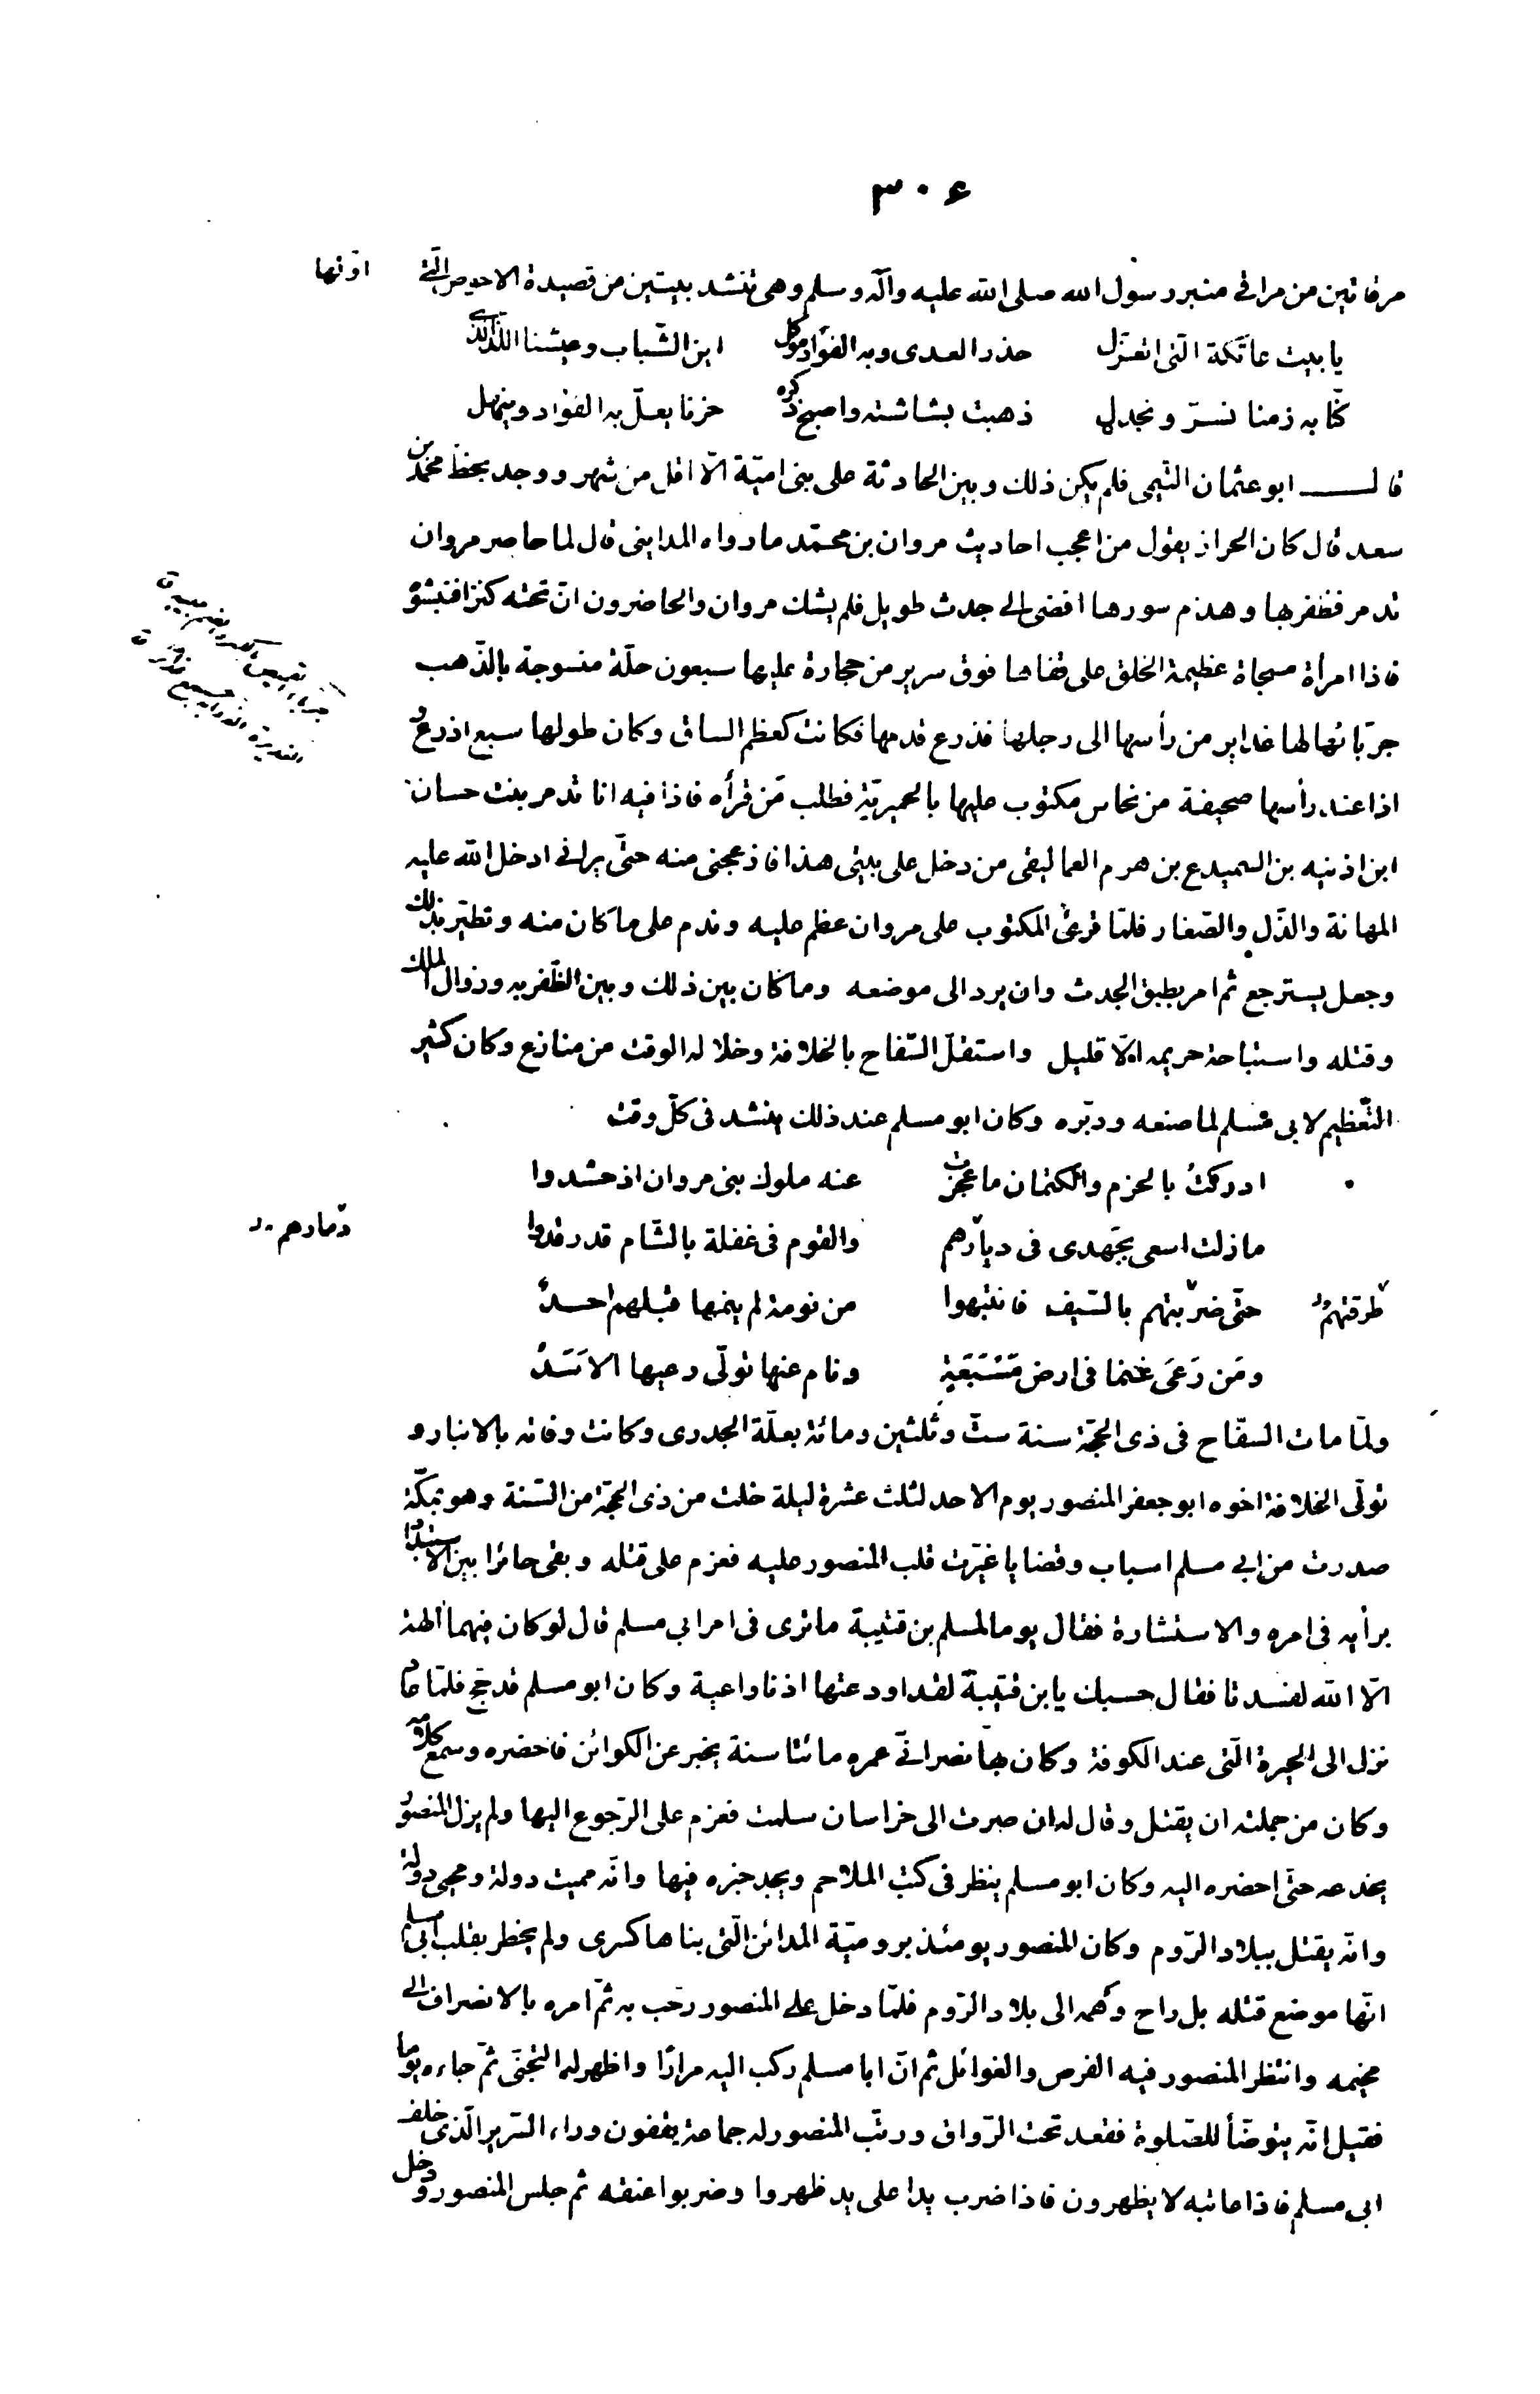 ٣٠٤
مرقاتين من مراقى منبر رسول الله صلى الله عليه وآله وسلم وهى تنشد بيتين من قصيدة الاحوص الّتى اوّلها
يا بيت عاتكة الّتى اتعزّل حذر العدى وبه الفؤاد موكل اين الشّباب وعيشنا اللّذ الّذى
كنّا به زمنا نسرّ ونجدل ذهبت بشاشته واصبح ذكره حزنا يعلّ به الفؤاد وينهل
قال ابو عثمان التّيمى فلم يكن ذلك وبين الحادثة على بنى اميّة الّا اقل من شهر ووجد بخط محمّد بن
سعد قال كان الحراز يقول من اعجب احاديث مروان بن محمّد ما رواه المداينى قال لما حاصر مروان
تدمر فظفر بها وهدم سورها افضى الى جدث طويل فلم يشك مروان والحاضرون انّ تحته كنزا فنبشوه
فاذا امرأة مسجاة عظيمة الخلق على قفاها فوق سرير من حجارة عليها سبعون حلّة منسوجة بالذّهب
جربّانها لها غداير من رأسها الى رجلها فذرع قدمها فكانت كعظم الساق وكان طولها سبع اذرع و
اذا عند رأسها صحيفة من نحاس مكتوب عليها بالحميريّة فطلب مَن قرأه فاذا فيه انا تدمر بنت حسان
ابن اذنيه بن السميدع بن هرم العماليقى من دخل على بيتى هذا فازعجنى منه حتّى يرانى ادخل الله عليه
المهانة والذّل والصّغار فلمّا قرئ المكتوب على مروان عظم عليه وندم على ما كان منه وتطيّر بذلك
وجعل يسترجع ثم امر بطبق الجدث وان يرد الى موضعه وما كان بين ذلك وبين الظّفر به وزوال الملك
وقتله واستباحة حريمه الّا قليل واستقلّ السّفاح بالخلافة وخلا له الوقت من منازع وكان كثير
التّعظيم لابى مسلم لما صنعه ودبّره وكان ابو مسلم عند ذلك ينشد فى كلّ وقت
ادركتُ بالحزم والكتمان ما عجزت عنه ملوك بنى مروان اذ حشدوا
ما زلت اسعى بجَهدى فى ديارهم والقوم فى غفلة بالشّام قد رقدوا دَمارهم
طرقتهم حتّى ضربتهم بالسّيف فانتبهوا من نومة لم ينمها قبلهم احدٌ
ومَن رَعىَ غنما فى ارض مَسْبَعَةٍ ونام عنها تولّى رعيها الاَسَدُ
ولمّا مات السفّاح فى ذى الحجّة سنة ستّ وثلثين ومائة بعلّة الجدرى وكانت وفاته بالانبار و
تولّى الخلافة اخوه ابو جعفر المنصور يوم الاحد لثلث عشرة ليلة خلت من ذى الحجّة من السّنة وهو بمكّة
صدرت من ابى مسلم اسباب وقضايا غيّرت قلب المنصور عليه فعزم على قتله وبقى حائرا بين الاستبداد
برأيه فى امره والاستشارة فقال يوما لمسلم بن قتيبة ما ترى فى امر ابى مسلم قال لو كان فيهما الهة
الّا الله لفسدتا فقال حسبك يا بن قتيبة لقد اودعتها اذنا واعية وكان ابو مسلم قد حجّ فلمّا عاد
نزل الى الحيرة الّتى عند الكوفة وكان بها نصرانى عمره مائتا سنة يخبر عن الكوائن فاحضره وسمع كلامه
وكان من جملته ان يقتل وقال له ان صرت الى خراسان سلمت فعزم على الرّجوع اليها ولم يزل المنصور
يخدعه حتّى احضره اليه وكان ابو مسلم ينظر فى كتب الملاحم ويجد خبره فيها وانّه مميت دولة ومحيى دولة
وانّه يقتل ببلاد الرّوم وكان المنصور يومئذ بروميّة المدائن الّتى بناها كسرى ولم يخطر بقلب ابى مسلم
انّها موضع قتله بل راح وهمه الى بلاد الرّوم فلمّا دخل على المنصور رحّب به ثمّ امره بالانصراف الى
مخيمه وانتظر المنصور فيه الفرص والغوائل ثم انّ ابا مسلم ركب اليه مرارًا واظهر له التّجنّى ثمّ جاءه يوما
فقيل انّه يتوضّأ للصّلوة فقعد تحت الرّواق ورتّب المنصور له جماعة يقفون وراء السّرير الّذى خلف
ابى مسلم فاذا عاتبه لا يظهرون فاذا ضرب يدا على يد ظهروا وضربوا عنقه ثم جلس المنصور ودخل